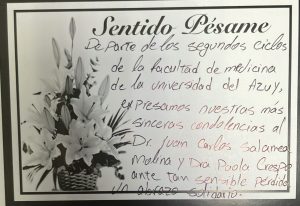 Sentido Pésame
De parte de los segundos ciclos
de la facultad de medicina
de la universidad del Azuay,
expresamos nuestras más
sinceras condolencias al
Dr. Juan Carlos Salamea
Molina y Dra Paola Crespo
ante tan sensible perdida
Un abrazo solidario.